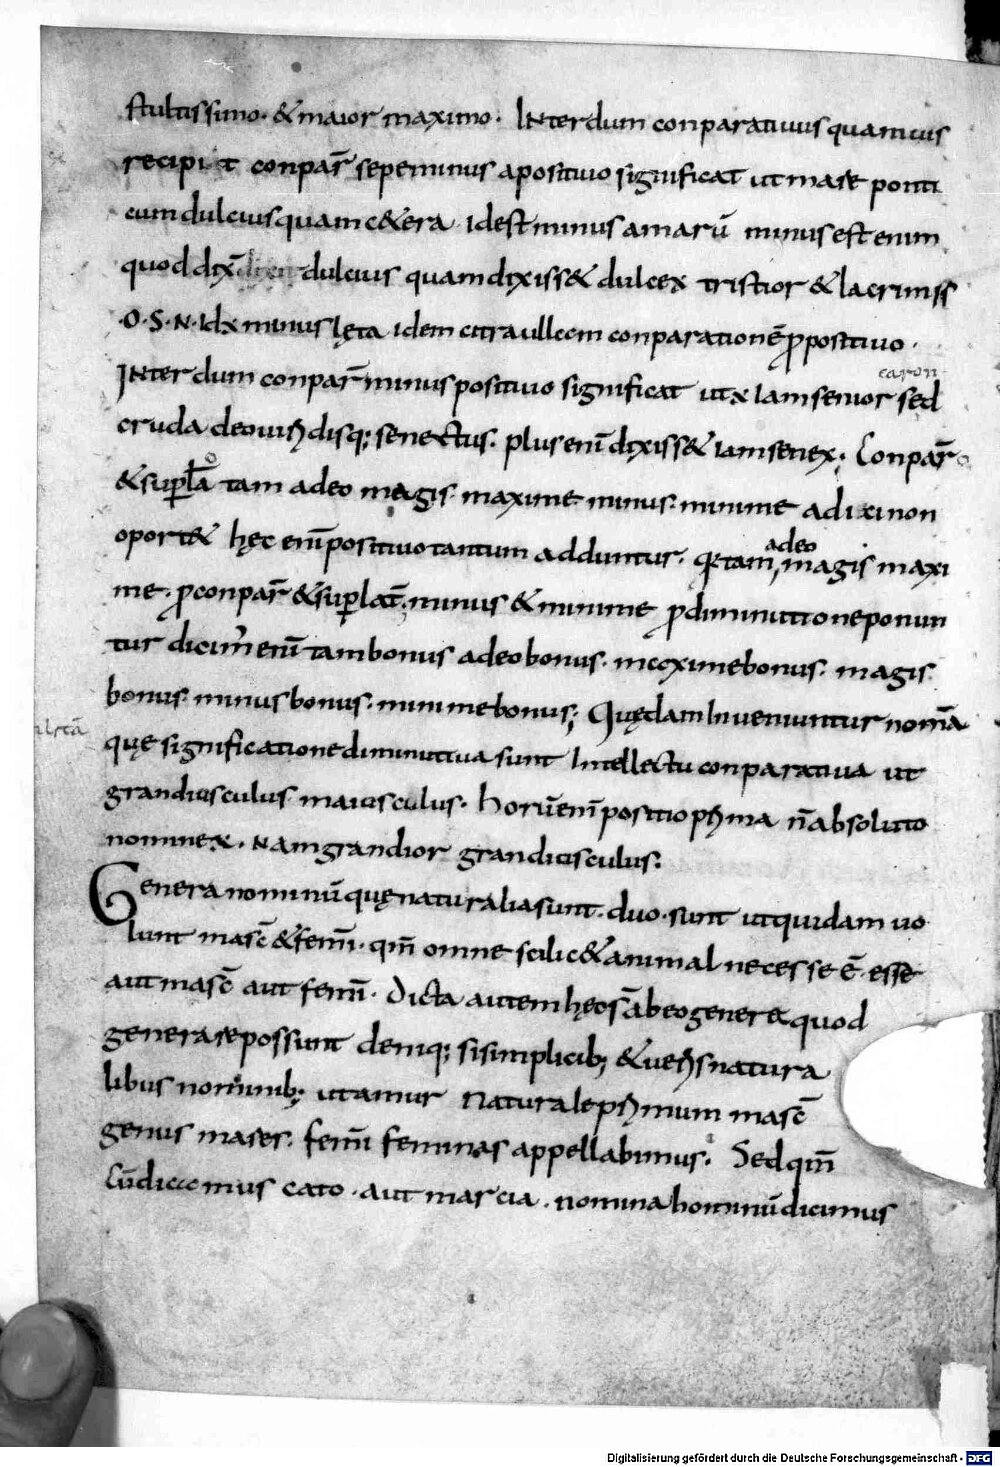 stultissimo · & maior maximo · INterdum conparatiuus quamuis
recipi t conpar̄ sepe minus a positiuo significat ut mare ponti
cum dulcius quam c&era · id est minus amarū minus est enim
quod dix̄ dulcius quam dixiss& dulcex tristior & lacrimiss
·O·S·N· Idx minus lęta idem citra ullam conparationē p̱positiuo ·
INterdum conpar̄ minus positiuo significat utx Iam senior sed
caron
cruda deo uiridisq; senectus · plus eni̅ dixiss& iam senex ; Conpar̄
& suꝑlā tam adeo magis · maxime · minus · minime adici non
oport& hęc eni̅ positiuo tantum adduntur · qr̄ tam, magis maxi
adeo
me · ꝓ conpar̄ & suꝑlat̄ ; minus & minime ꝓ diminutione ponun
tur dicim̄ eni̅ tam bonus adeo bonus · maxime bonus · magis
bonus · minus bonus · minime bonus ; Quędam Inueniuntur nom̄a
quę significatione diminutiua sunt Intellectu conparatiua ut
grandiusculus maiusculus · horū eni̅ positio prima n̄ absoluto
nominex · Nam grandior grandiusculus :
Genera nominū quę naturalia sunt · duo · sunt ut quidam uo
lunt masc̄ & femi̅ · qm̄ omne scilic& animal necesse ē · esse
aut masc̄ aut femi̅ · Dicta autem hęc s̄ ab eo genera quod
generare possunt deniq; si simplicib; & ueris natura
libus nominib; utamur Naturale primum masc̄
genus mares · femi̅ feminas appellabimus · Sed qm̄
cū dicomus cato · aut marcia · nomina hominū dicimus